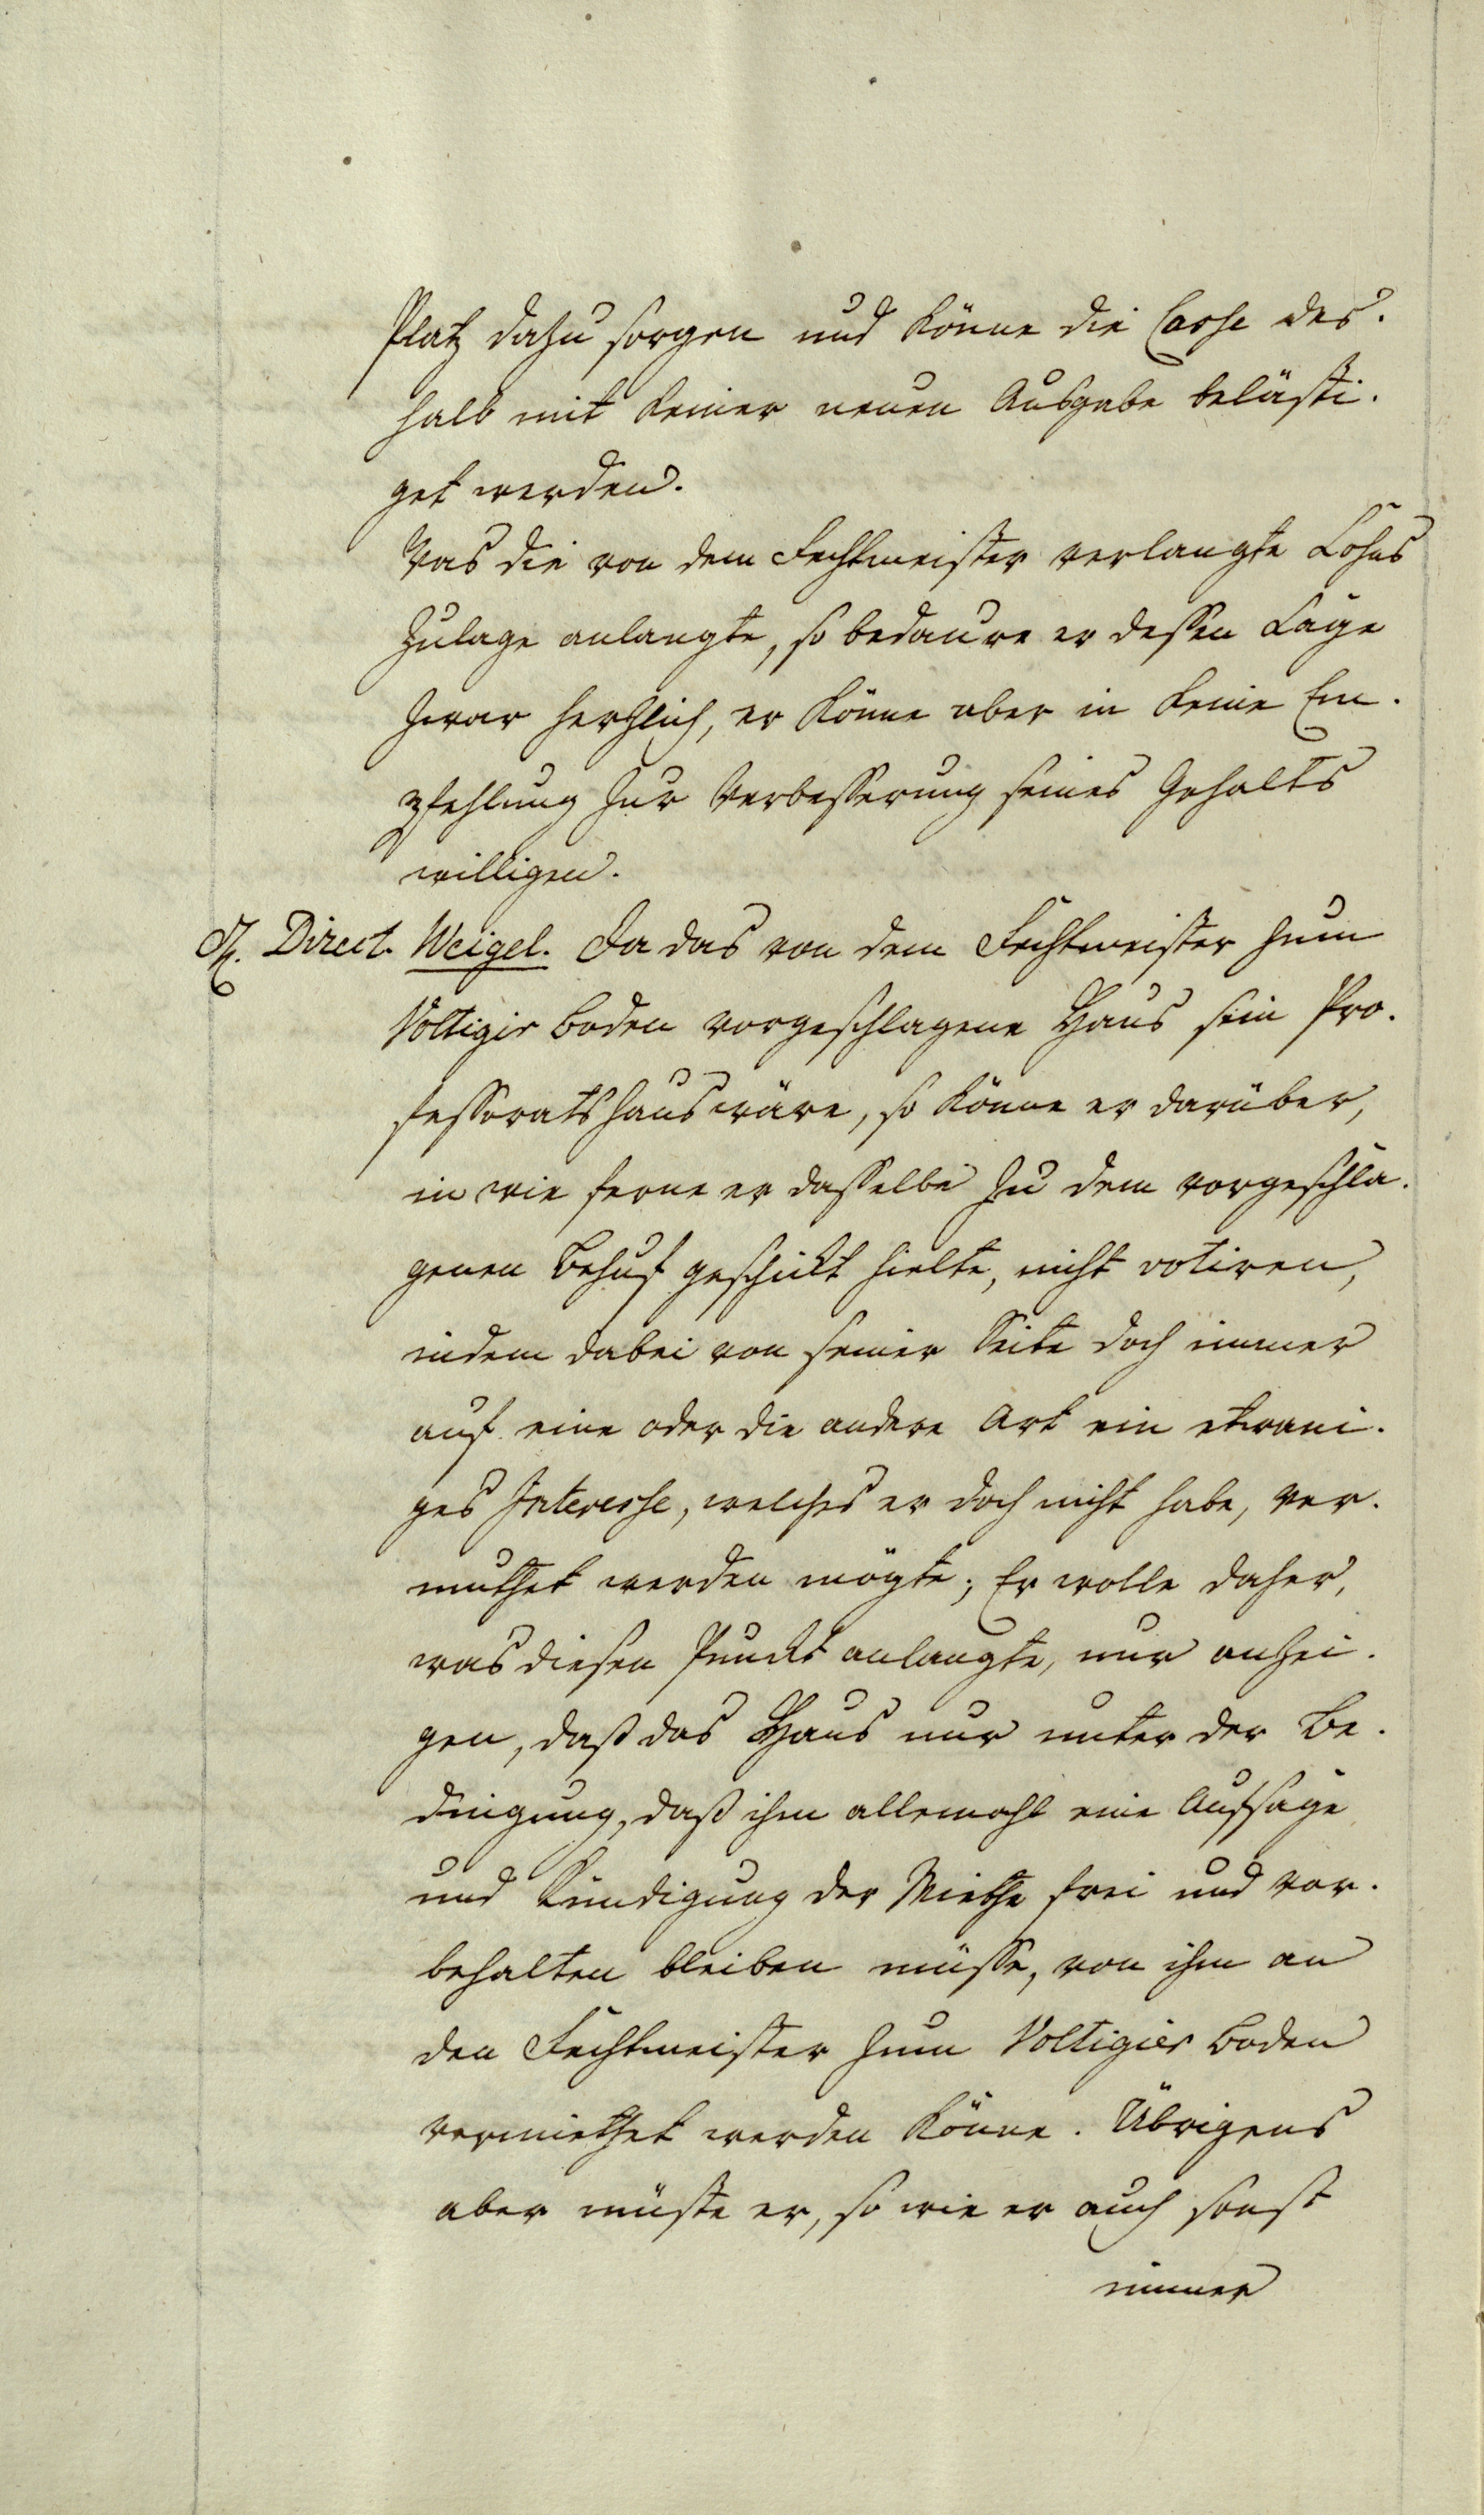 Platz dazu sorgen und könne die Casse des-
halb mit keiner neuen Ausgabe belästi-
get werden.
Was die von dem Fechtmeister verlangte Lohns
Zulage anlangte, so bedaure er dessen Lage
zwar herzlich, er könne aber in keine Em-
pfehlung zur Verbesserung seines Gehalts
willigen.
H. Direct. Weigel. Da das von dem Fechtmeister zum
Voltigir Boden vorgeschlagene Haus sein Pro-
fessoratshaus wäre, so könne er darüber,
in wie ferne er dasselbe zu dem vorgeschla-
genen Behuf geschikt hielte, nicht votiren,
indem dabei von seiner Seite doch immer
auf eine oder die andere Art ein etwani-
ges Interesse, welches er doch nicht habe, ver-
muthet werden mögte; Er wolle daher,
was diesen Punckt anlangte, nur anzei-
gen, daß das Haus nur unter der Be-
dingung, daß ihm allemahl eine Aufsage
und Kündigung der Miethe frei und vor-
behalten bleiben müsse, von ihm an
den Fechtmeister zum Voltigier Boden
vermiethet werden könne. Übrigens
aber müste er, so wie er auch sonst
immer